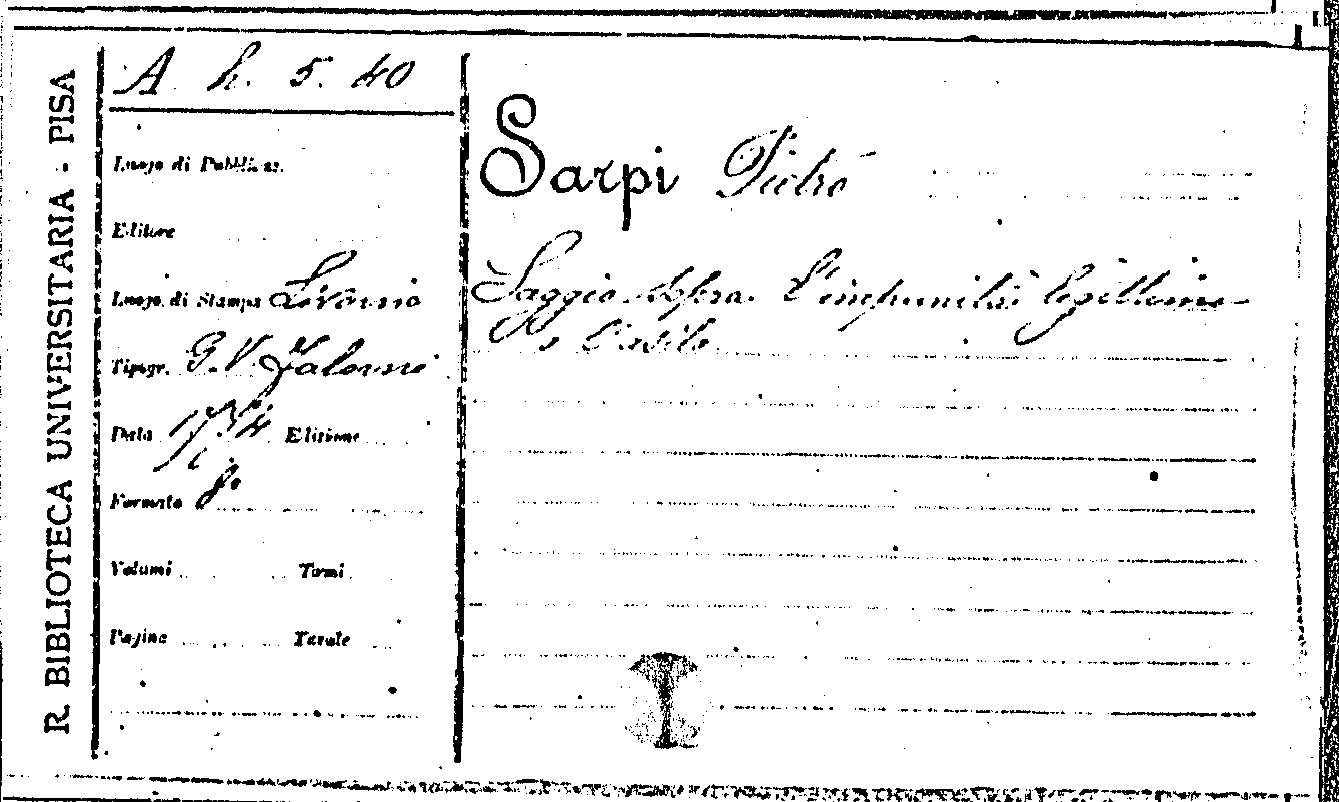 R. BIBLIOTECA UNIVERSITARIA - PISA
A. h. 5. 40
Luogo di Pubblicaz.
Editore
Luogo di Stampa Livorno
Tipogr. G. V. Falorni
Data 1774 Edizione
Formato 8°
Volumi Tomi
Pagine Tavole
Sarpi Pietro
Saggio sopra l'impunità legittima
o l'asilo